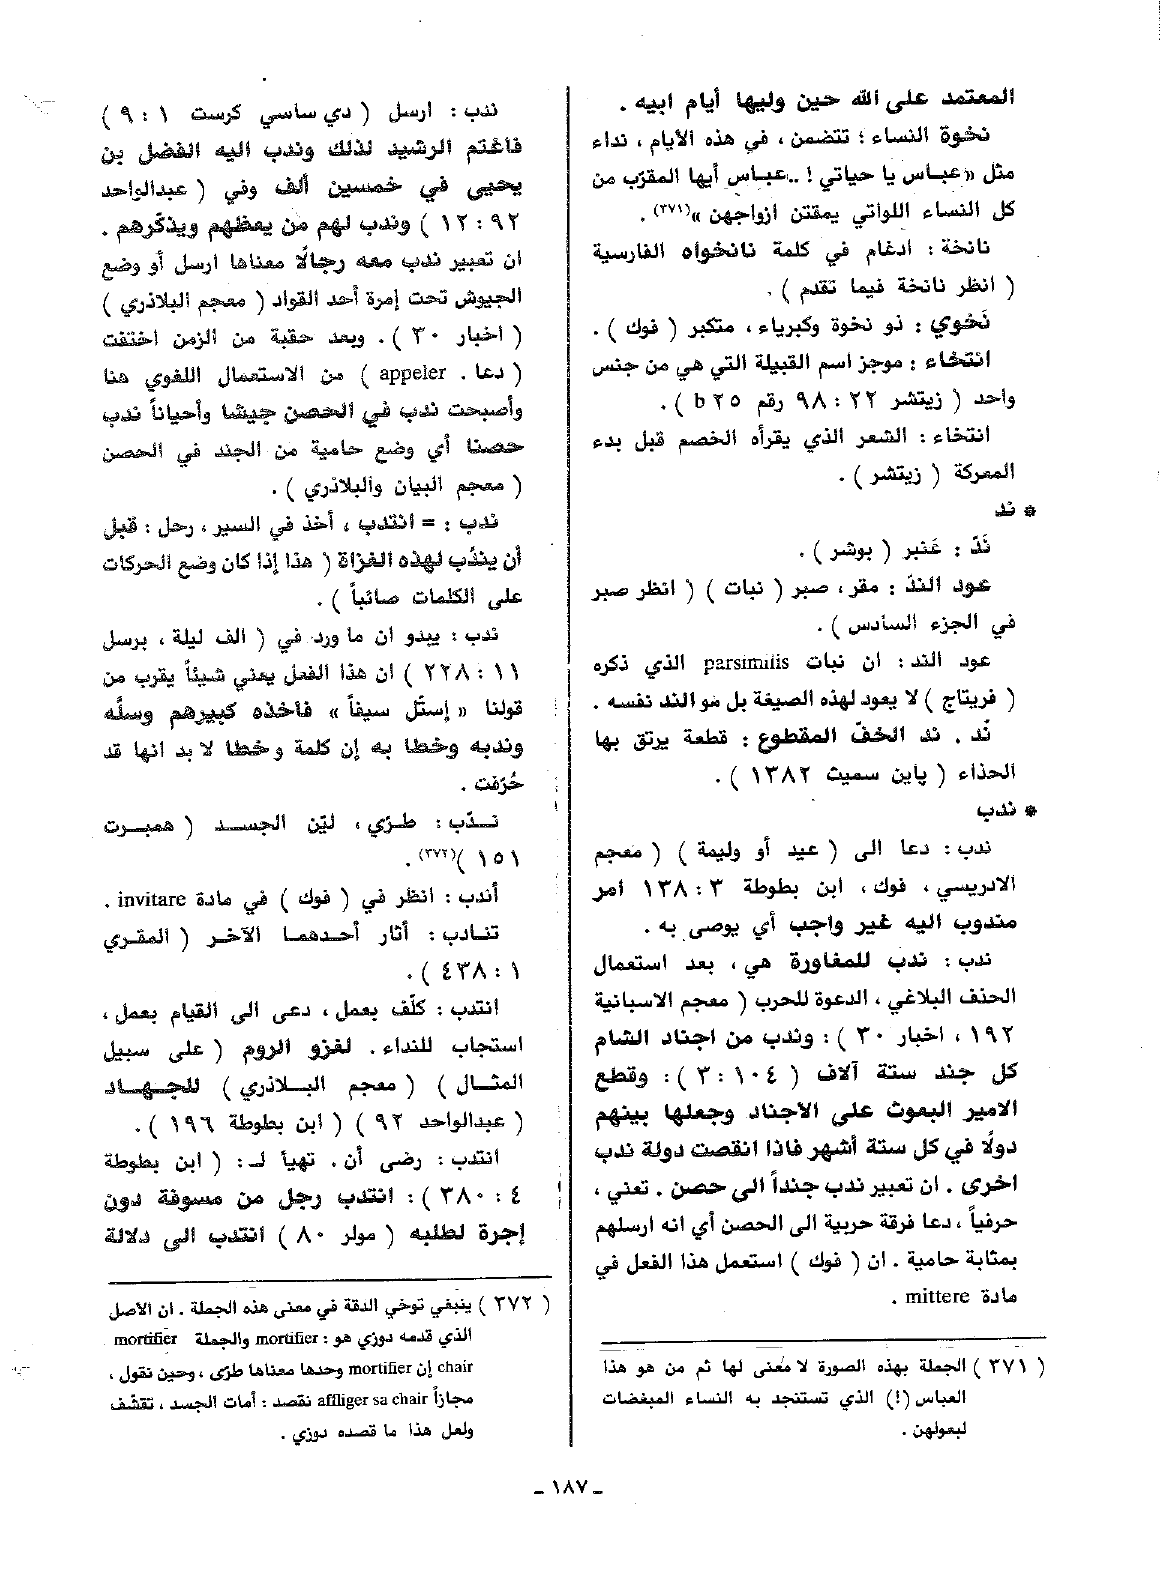 المعتمد على الله حين وليها أيام ابيه .
نخوة النساء ؛ تتضمن ، في هذه الأيام ، نداء
مثل « عباس يا حياتي ! .. عباس أيها المقرّب من
كل النساء اللواتي يمقتن ازواجهن »(٣٧١) .
نانخة : ادغام في كلمة نانخواه الفارسية
( انظر نانخة فيما تقدم ) .
نَخوي : ذو نخوة وكبرياء ، متكبر ( فوك ) .
انتخاء : موجز اسم القبيلة التي هي من جنس
واحد ( زيتشر ٢٢ : ٩٨ رقم ٢٥ b ) .
انتخاء : الشعر الذي يقرأه الخصم قبل بدء
المعركة ( زيتشر ) .
* ند
نَدّ : عَنبر ( بوشر ) .
عود الندّ : مقر ، صبر ( نبات ) ( انظر صبر
في الجزء السادس ) .
عود الند : ان نبات parsimilis الذي ذكره
( فريتاج ) لا يعود لهذه الصيغة بل هو الند نفسه .
نّد . ند الخفّ المقطوع : قطعة يرتق بها
الحذاء ( پاين سميث ١٣٨٢ ) .
* ندب
ندب : دعا الى ( عيد أو وليمة ) ( معجم
الادريسي ، فوك ، ابن بطوطة ٣ : ١٣٨ امر
مندوب اليه غير واجب أي يوصى به .
ندب : ندب للمغاورة هي ، بعد استعمال
الحذف البلاغي ، الدعوة للحرب ( معجم الاسبانية
١٩٢ ، اخبار ٣٠ ) : وندب من اجناد الشام
كل جند ستة آلاف ( ١٠٤ : ٣ ) : وقطع
الامير البعوث على الاجناد وجعلها بينهم
دولًا في كل ستة أشهر فاذا انقصت دولة ندب
اخرى . ان تعبير ندب جنداً الى حصن . تعني ،
حرفياً ، دعا فرقة حربية الى الحصن أي انه ارسلهم
بمثابة حامية . ان ( فوك ) استعمل هذا الفعل في
مادة mittere .
( ٣٧١ ) الجملة بهذه الصورة لا معنى لها ثم من هو هذا
العباس (!) الذي تستنجد به النساء المبغضات
لبعولهن .
ندب : ارسل ( دي ساسي كرست ١ : ٩ )
فاغتم الرشيد لذلك وندب اليه الفضل بن
يحيى في خمسين ألف وفي ( عبدالواحد
٩٢ : ١٢ ) وندب لهم من يعظهم ويذكّرهم .
ان تعبير ندب معه رجالًا معناها ارسل أو وضع
الجيوش تحت إمرة أحد القواد ( معجم البلاذري )
( اخبار ٣٠ ) . وبعد حقبة من الزمن اختفت
( دعا . appeler ) من الاستعمال اللغوي هنا
وأصبحت ندب في الحصن جيشا وأحياناً ندب
حصنا أي وضع حامية من الجند في الحصن
( معجم البيان والبلاذري ) .
ندب : = انتدب ، أخذ في السير ، رحل : قبل
أن يندُب لهذه الغزاة ( هذا إذا كان وضع الحركات
على الكلمات صائباً ) .
ندب : يبدو ان ما ورد في ( الف ليلة ، برسل
١١ : ٢٢٨ ) ان هذا الفعل يعني شيئاً يقرب من
قولنا « إستّل سيفاً » فاخذه كبيرهم وسلّه
وندبه وخطا به إن كلمة وخطا لا بد انها قد
حُرّفت .
ندّب : طرّي ، ليّن الجسد ( همبرت
١٥١ )(٣٧٢) .
أندب : انظر في ( فوك ) في مادة invitare .
تنادب : أثار أحدهما الآخر ( المقري
١ : ٤٣٨ ) .
انتدب : كلّف بعمل ، دعى الى القيام بعمل ،
استجاب للنداء . لغزو الروم ( على سبيل
المثال ) ( معجم البلاذري ) للجهاد
( عبدالواحد ٩٢ ) ( ابن بطوطة ١٩٦ ) .
انتدب : رضى أن . تهيأ لـ : ( ابن بطوطة
٤ : ٣٨٠ ) : انتدب رجل من مسوفة دون
إجرة لطلبه ( مولر ٨٠ ) انتدب الى دلالة
( ٣٧٢ ) ينبغي توخي الدقة في معنى هذه الجملة . ان الاصل
الذي قدمه دوزي هو : mortifier والجملة mortifier
chair إن mortifier وحدها معناها طرّى ، وحين نقول ،
مجازاً affliger sa chair نقصد : أمات الجسد ، تقشف
ولعل هذا ما قصده دوزي .
ـ ١٨٧ ـ